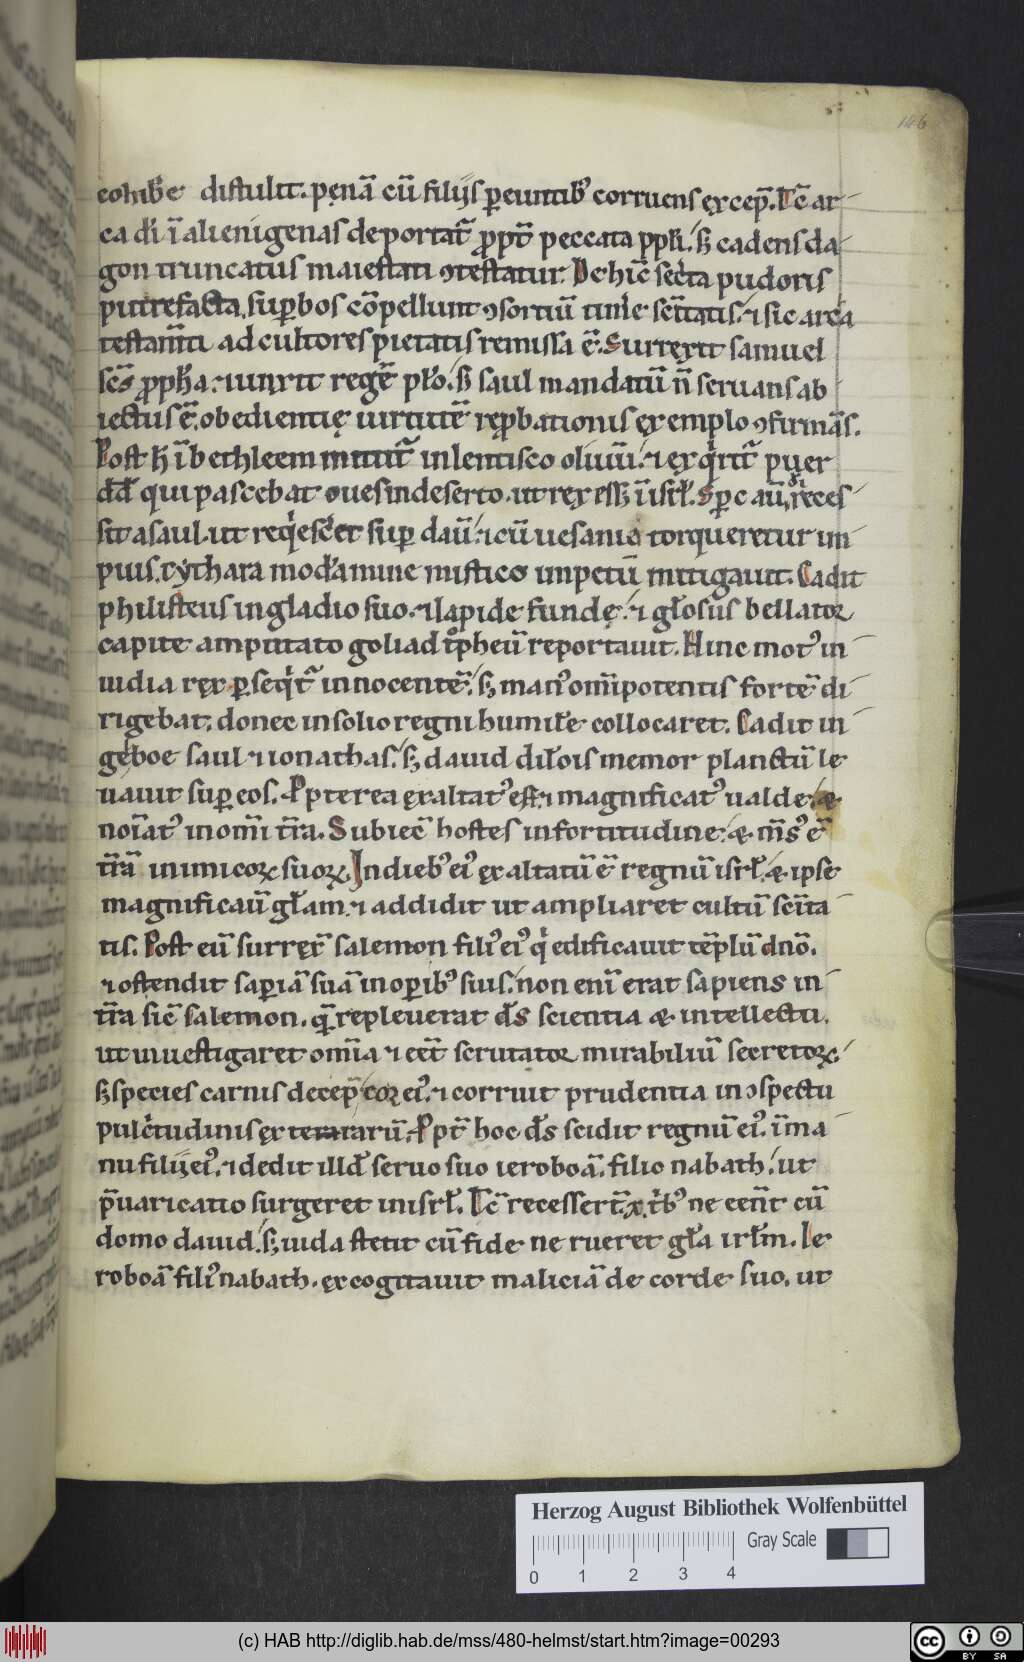 146
cohib̄e distulit. pęnā cū filijs ꝑeuntibꝰ corruens ęxcep̄. Tc̄ ar
ca dī ī alienigenas deportat̄ ꝓpt̄ peccata ppłi. sꝫ cadens da
gon truncatus maiestati ꝯtestatur. Dehīc secͥta pudoris
putrefacta, suꝑbos cōpellunt ꝯsortiū tim̄e sc̄itatis. ⁊ sic arca
testam̄ti ad cultores pietatis remissa ē. Surręxit samuel
sc̄s ꝓpħa. ⁊ unxit regē pło. sꝫ saul mandatū n̄ seruans ab
iectus ē. obedientię uirtutē reꝓbationis ęxemplo ꝯfirmās.
Post ħ ī bethleem mittit̄ in lentisco oliuū. ⁊ ęxqͥrit̄ puer
dd̄ qui pascebat oues in deserto. ut ręx essꝫ ī isrł. Sꝑc aū rͤces
sit a saul. ut reqͥescͤet suꝑ dauͩ. ⁊ cū uesania torqueretur im
pius. cythara modͣamine mistico impetū mitigauit. Cadit
philisteus in gladio suo. ⁊ lapide fundę. ⁊ głosus bellatoꝛ
capite amputato goliad tͦpheū reportauit. Hinc motꝰ in
uidia ręx ꝑseqͥt̄ innocentē. sꝫ manꝰ om̄ipotentis fortē di
rigebat. donec in solio regni humilē collocaret. Cadit in
gelboe saul ⁊ ionathas. sꝫ dauid dil̄ois memor planctū le
uauit suꝑ eos. Ppterea ęxaltatꝰ est ⁊ magnificatꝰ ualde. æ
noīatꝰ in om̄i t̄ra. Subiec̄ hostes in fortitudine. æ m̄sꝰ ē
t̄ra inimicoꝝ suoꝝ. In diebꝰ eiꝰ ęxaltatū ē regnū isrł. æ ipse
magnificauͩ głam. ⁊ addidit ut ampliaret cultū sc̄ita
tis. Post eū surręx̄ salemon filiꝰ eiꝰ qͥ edificauit tēplū dnō.
⁊ ostendit sapīa suā in oꝑibꝰ suis. non enī erat sapiens in
t̄ra sic̄ salemon. qͣ repleuerat d̄s scientia æ intellectu.
ut inuestigaret om̄ia ⁊ eēt scrutatoꝛ mirabiliū secretoꝝ.
sꝫ species carnis decep̄ coꝛ eiꝰ. ⁊ corruit prudentia in ꝯspectu
pulcͥtudinis ęxterarū. Ppt̄ hoc d̄s scidit regnū eiꝰ. ī ma
nu filij eiꝰ. ⁊ dedit illd̄ seruo suo ieroboā. filio nabath. ut
p̄uaricatio surgeret in isrł. Tc̄ recessert̄ .x. tͥbꝰ ne eēnt cū
domo dauid. sꝫ iuda stetit cū fide ne rueret gła irłm. Ie
roboā filiꝰ nabath. ęxcogitauit maliciā de corde suo. ut
Herzog August Bibliothek Wolfenbüttel
Gray Scale
0 1 2 3 4
(c) HAB http://diglib.hab.de/mss/480-helmst/start.htm?image=00293
cc BY SA